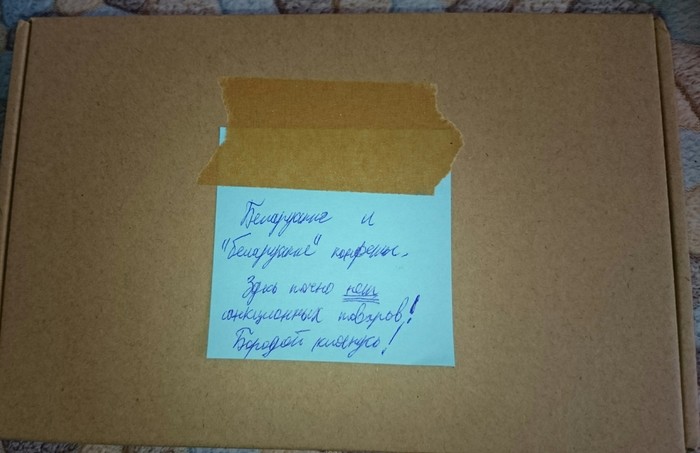 Беларуские и
"беларуские" конфеты.
Здесь точно нет
санкционных товаров!
Бородой клянусь!